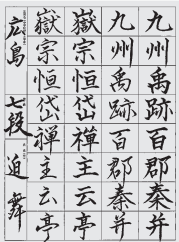 九州禹跡百郡秦并
九州禹跡百郡秦并
嶽宗恒岱禪主云亭
嶽宗恒岱禅主云亭
広島 七段 迫 舞